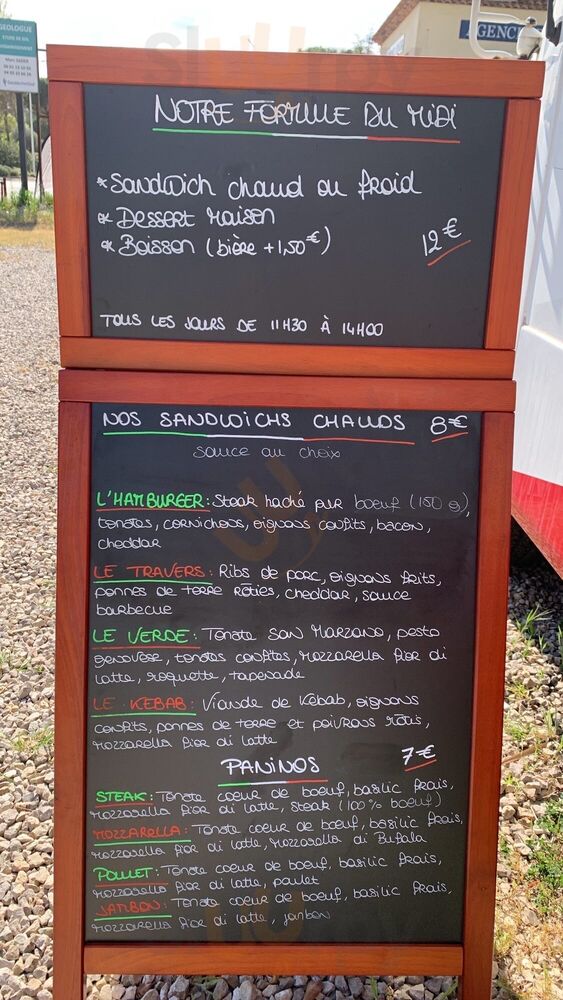 GEOLOGUE
AGENCE
NOTRE FORMULE DU MIDI
*Sandwich chaud ou froid
* Dessert maison
* Boisson (bière +1,50€)
12€
TOUS LES JOURS DE 11H30 À 14H00
NOS SANDWICHS CHAUDS 8€
sauce au choix
L'HAMBURGER: Steak haché pur boeuf (150 g),
tomates, cornichons, oignons confits, bacon,
cheddar
LE TRAVERS: Ribs de porc, oignons frits,
pommes de terre rôties, cheddar, sauce
barbecue
LE VERDE: Tomate SAN MARZANO, pesto
genovese, tomates confites, mozzarella fior di
latte, roquette, tapenade
LE KEBAB: Viande de Kébab, oignons
confits, pommes de terre et poivrons rôtis,
mozzarella fior di latte
PANINOS 7€
STEAK: Tomate coeur de boeuf, basilic frais,
mozzarella fior di latte, steak (100% boeuf)
MOZZARELLA: Tomate coeur de boeuf, basilic frais,
mozzarella fior di latte, mozzarella di Bufala
POULET: Tomate coeur de boeuf, basilic frais,
mozzarella fior di latte, poulet
JAMBON: Tomate coeur de boeuf, basilic frais,
mozzarella fior di latte, jambon